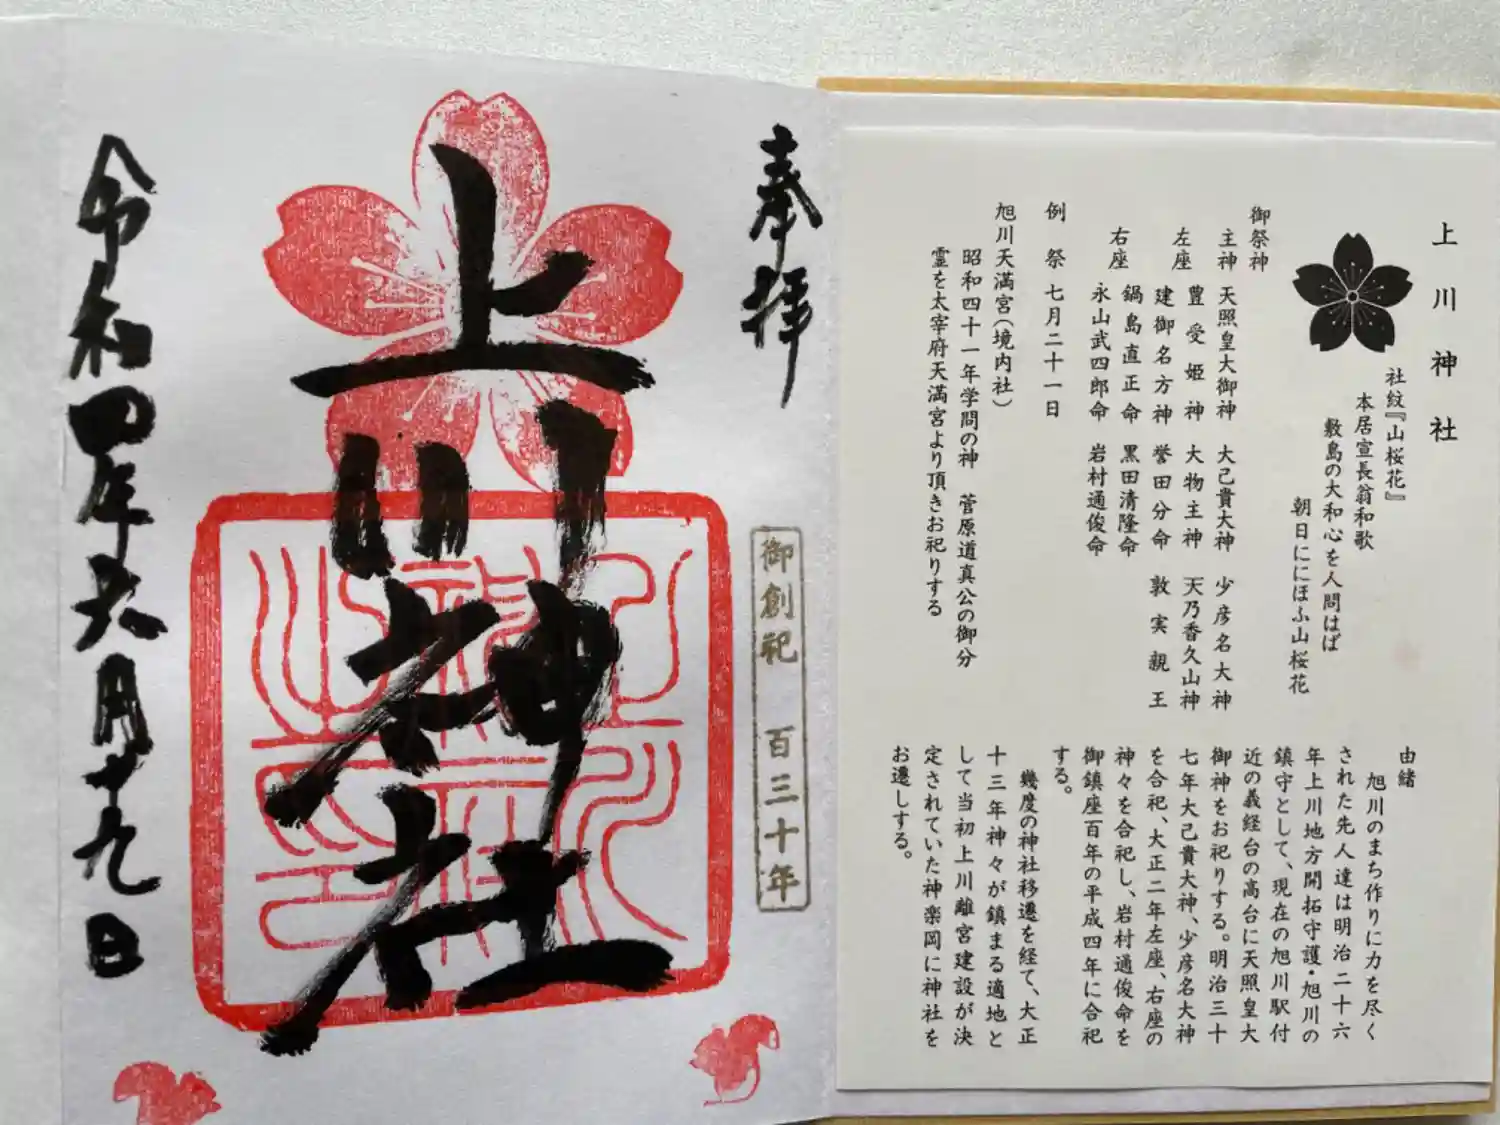 上川神社
社紋『山桜花』
本居宣長翁和歌
敷島の大和心を人問はば
朝日ににほふ山桜花
御祭神
主神 天照皇大御神 大己貴大神 少彦名大神
豊受姫神 大物主神 天乃香久山神
左座 建御名方神 誉田分命 敦実親王
鍋島直正命 黒田清隆命
右座 永山武四郎命 岩村通俊命
例祭 七月二十一日
旭川天満宮(境内社)
昭和四十一年学問の神 菅原道真公の御分
霊を太宰府天満宮より頂きお祀りする
由緒
旭川のまち作りに力を尽く
された先人達は明治二十六
年上川地方開拓守護・旭川の
鎮守として、現在の旭川駅付
近の義経台の高台に天照皇大
御神をお祀りする。明治三十
七年大己貴大神、少彦名大神
を合祀、大正二年左座、右座の
神々を合祀し、岩村通俊命を
御鎮座百年の平成四年に合祀
する。
幾度の神社移遷を経て、大正
十三年神々が鎮まる適地と
して当初上川離宮建設が決
定されていた神楽岡に神社を
お遷しする。
奉拝
御創祀 百三十年
上川神社
令和四年六月十九日